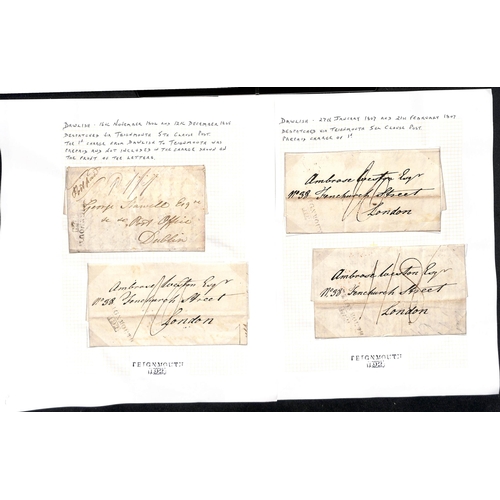 DAWLISH - 16th NOVEMBER 1806 AND 12th DECEMBER 1806
DESPATCHED VIA TEIGNMOUTH 5TH CLAUSE POST.
THE 1d CHARGE FROM DAWLISH TO TEIGNMOUTH WAS
PREPAID AND NOT INCLUDED IN THE CHARGE SHOWN ON
THE FRONT OF THE LETTERS.
George Esqre
Post Office
Dublin
Ambrose Weston Esqr
No 58 Fenchurch Street
London
TEIGNMOUTH
DAWLISH - 27th JANUARY 1807 AND 2nd FEBRUARY 1807
DESPATCHED VIA TEIGNMOUTH 5th CLAUSE POST.
PREPAID CHARGE OF 1d
Ambrose Weston Esqr
No 58 Fenchurch Street
London
Ambrose Weston Esqr
No 58 Fenchurch Street
London
TEIGNMOUTH